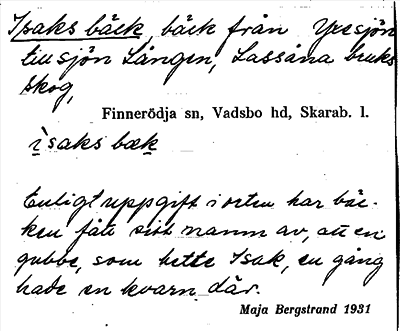 Isaks bäck, bäck från Yxesjön
till sjön Lången, Lassåna bruks
skog,
Finnerödja sn, Vadsbo hd, Skarab. l.
ìsaks bæk
Enligt uppgift i orten har bäc-
ken fått sitt namn av, att en
gubbe, som hette Isak, en gång
hade en kvarn där.
Maja Bergstrand 1931